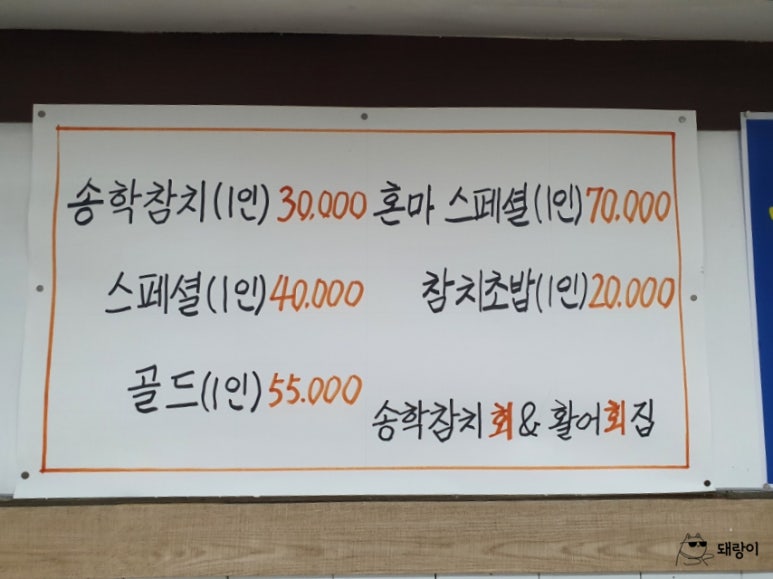 송학참치(1인) 30.000
스페셜(1인) 40.000
골드(1인) 55.000
혼마 스페셜(1인) 70.000
참치초밥(1인) 20.000
송학참치회 & 활어회집
돼랑이